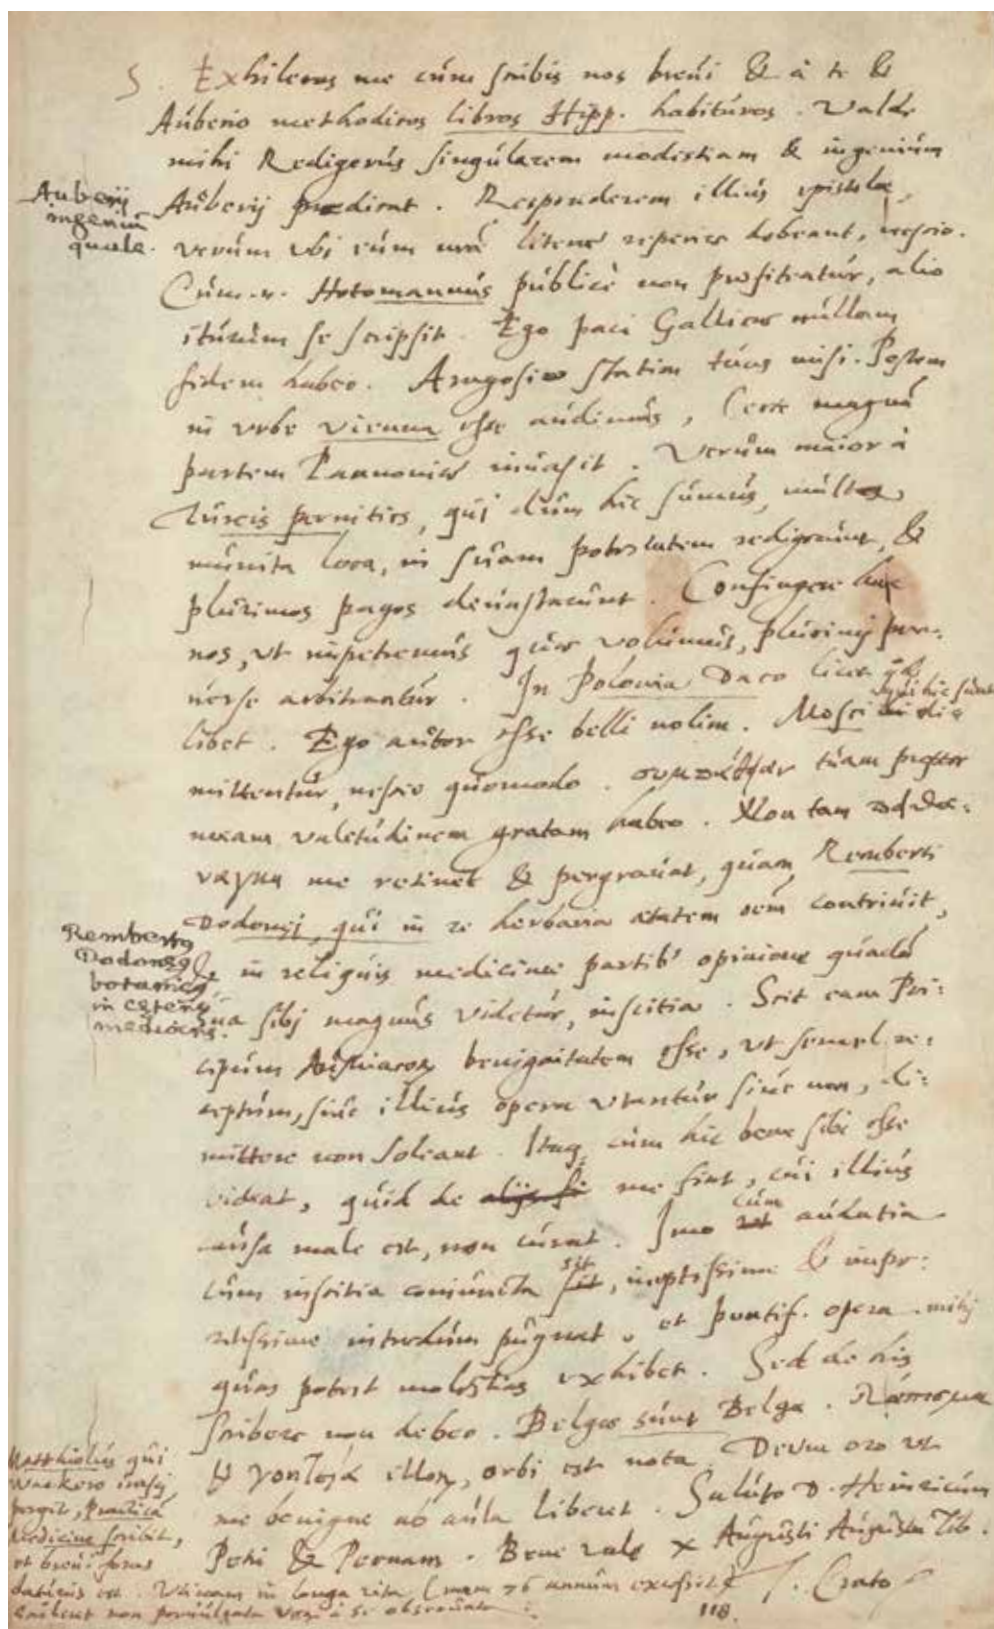 S. Exhileras me cùm scribis nos breui & à te &
Auberio methodicos libros Hipp. habituros. Valde
mihi Redigerus singularem modestiam & ingenium
Auberij prædicat. Responderem illius epistolæ,
verùm vbi eum meæ literæ reperire debeant, nescio.
Cùm .n. Hotomannus publicè non profiteatur, alio
iturum se scripsit. Ego paci Gallicæ nullam
fidem habeo. Aragosio statim tuas misi. Pestem
in vrbe Vienna esse audimus, Certe magnā
partem Pannoniæ inuasit. Verùm maior à
Turcis pernities, qui dum hic sumus, multa
munita loca, in suam potestatem redigerunt, &
plurimos pagos deuastarunt. Confugere huc
nos, vt impetremus quæ volumus, plurimi per-
uerse arbitrantur. In Polonia Daco licet qd
libet. Ego autor esse belli nolim. Mosci qui hic sunt
mittentur, nescio quomodo. tuam propter
meam valetudinem gratam habeo. Non tam
me retinet & pergrauat, quàm Remberti
Dodonæi, qui in re herbaria ætatem oēm contriuit,
& in reliquis medicinæ partib' opinione quadā
sua sibj magnus videtur, inscitia. Scit eam Pri-
cipum benignitatem esse, vt semel re-
ceptum, siue illius opera vtantur siue non, di-
mittere non soleant. Itaq; cùm hic bene sibi esse
videat, quid de alijs fi me fiat, cui illius
causa male est, non curat. Imo cùm audatia
cùm inscitia coniuncta sit, ineptissime & impu-
dentissime interdum pugnat. et pontif. opera mihj
quas potest molestias exhibet. Sed de his
scribere non debeo. Belgæ sunt Belgæ.
illorū, orbi est nota. Deum oro vt
me benigne ab aula liberet. Saluto D. Heinricum
Petri & Pernam. Bene vale X Augusti Augustæ Vib.
J. Crato
118.
Auberij
ingeniū
quale.
Rembertus
Dodoneus
botanicus
in ceteris
mediocris.
Matthiolus qui
Weckero irasci
pergit, Practicā
Medicinæ scribit,
et breui foras
daturus est. Vtinam in longa vita (nam 76 annum excessit)
non peruulgata à se obseruata